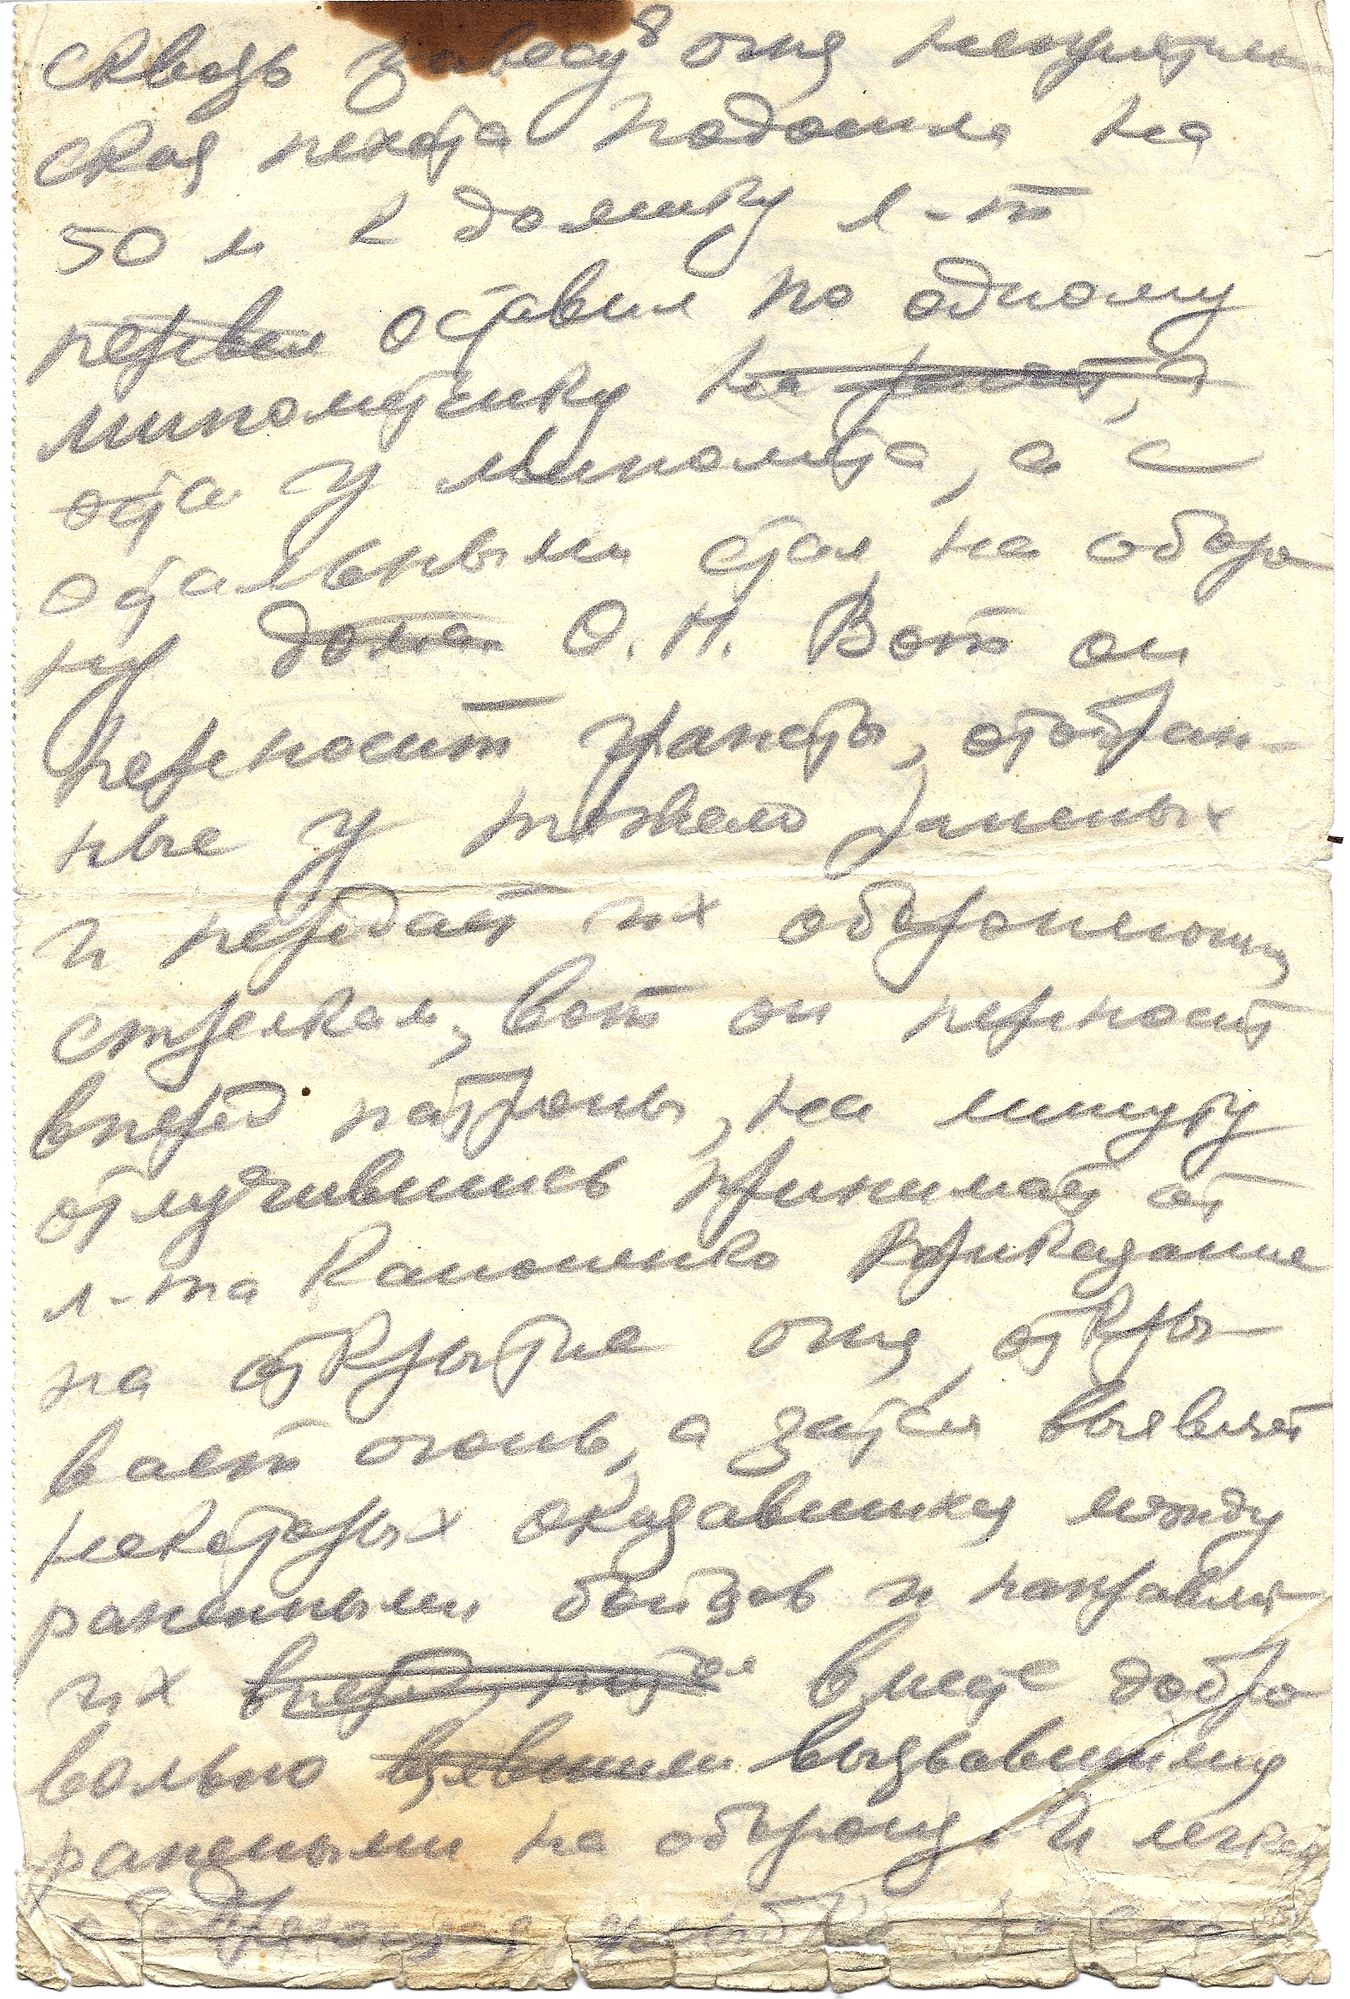 8
сквозь завесу огня неприятель
ская пехота подошла на
50 м к домику л-т
перевел оставил по одному
минометчику на
оста у миномета, а с
остальными стал на оборо
ну дома О.П. Вот он
переносит гранаты, отобран-
ные у тяжело раненых
и передает их обороняющим
стрелкам, вот он переносит
вперед патроны, на минуту
отлучившись принимает от
л-та Кононенко приказание
на открытие огня, откры-
вает огонь, а затем выявляет
некоторых оказавшихся между
ранеными бойцов и направляет
их вперед, вместе добро
вольно вызвавшимися
ранеными на оборону. И легкая
ободряющая улыбка